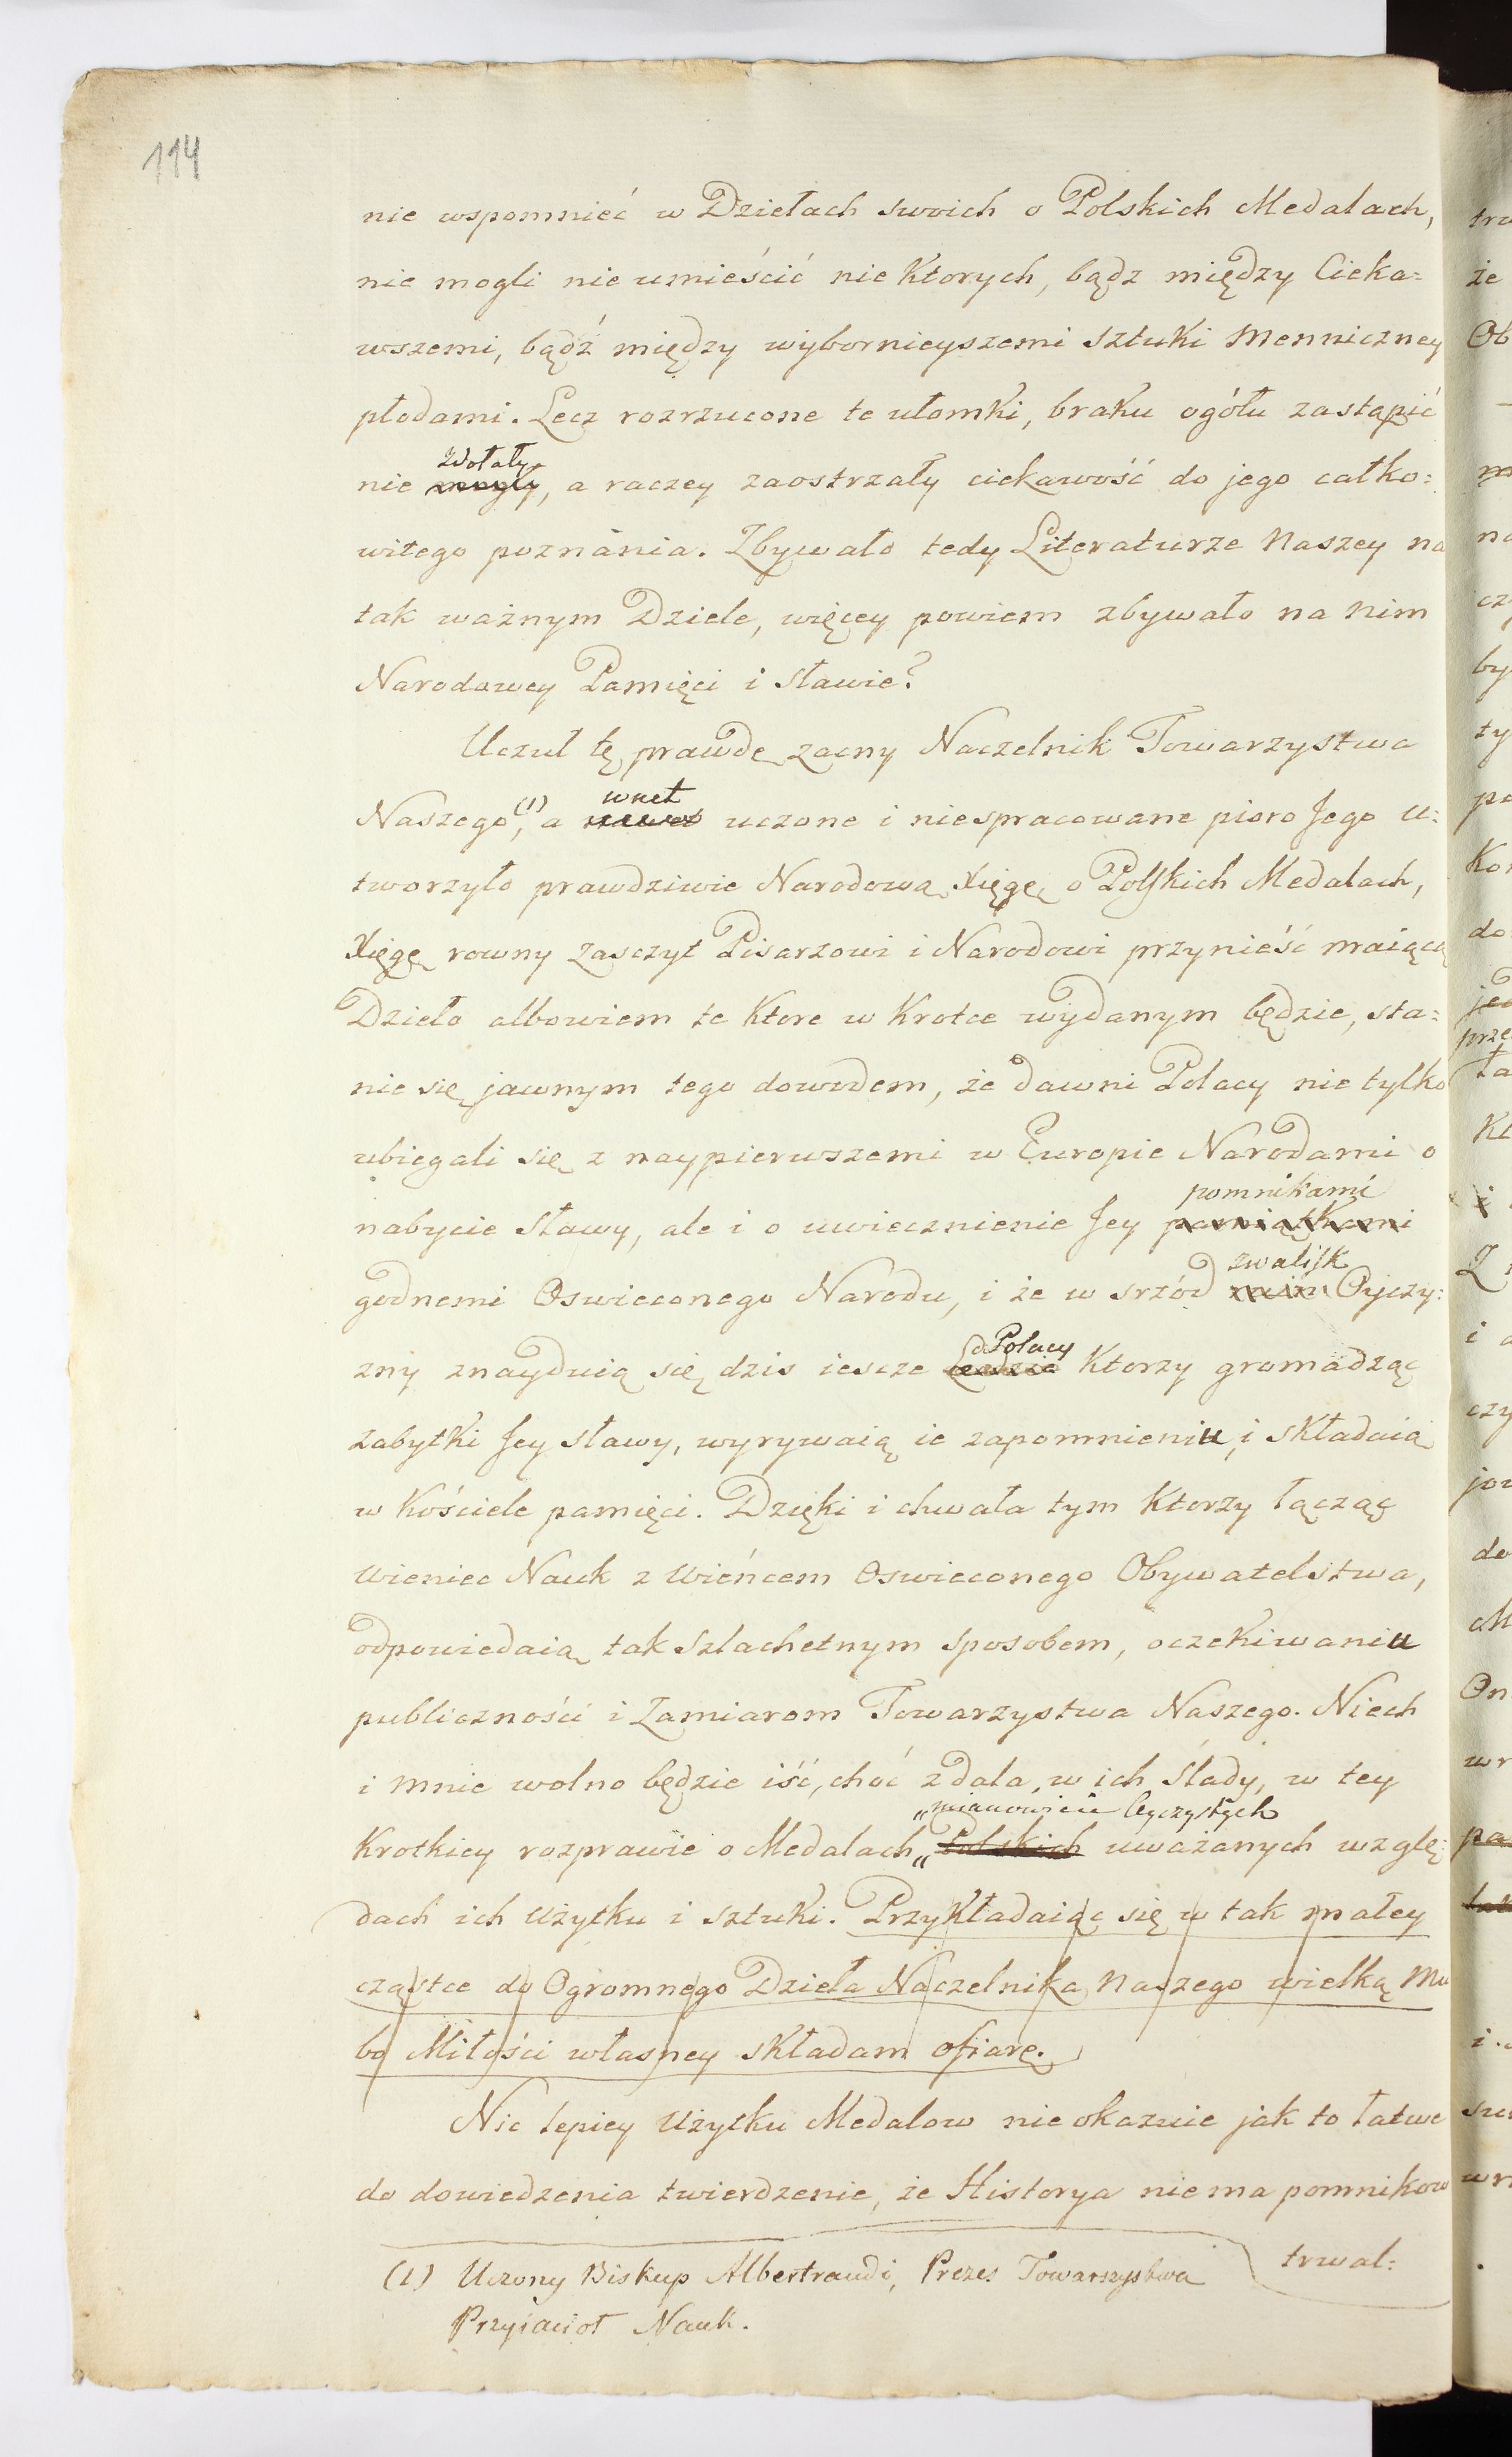 114
nie wspomnieć w Dziełach swoich o Polskich Medalach,
nie mogli nie umieścić nie Ktorych, bądz między Cieka=
wszemi, bądź między wybornieyszemi sztuki Menniczney
płodami. Lecz rozrzucone te ułomki, braku ogółu zastąpić
zdołały
nie mogły, a raczey zaostrzały ciekawość do jego całko=
witego poznania. Zbywało tedy Literaturze Naszey na
tak ważnym Dziele, więcey powiem zbywało na nim
Narodowey Pamięci i sławie?
Uczuł tę prawdę zacny Naczelnik Towarzystwa
wnet
Naszego,(1) a uczone i niespracowane pioro Jego u=
tworzyło prawdziwie Narodową Xięgę o Polskich Medalach,
Xięgę rowny zasczyt Pisarzowi i Narodowi przynieść maiącą
Dzieło albowiem te Ktore w Krotce wydanym będzie, sta=
nie się jawnym tego dowodem, że dawni Polacy nie tylko
ubiegali się z naypierwszemi w Europie Narodami o
pomnikami
nabycie sławy, ale i o uwiecznienie Jey pamiątkami
zwalisk
godnemi Oswieconego Narodu, i że w srzód ruin Oyczy=
Polacy
zny znayduią się dzis iescze Ludzie Ktorzy gromadząc
zabytki Jey sławy, wyrywaią ie zapomnieniu, i składaią
w Kościele pamięci. Dzięki i chwała tym Ktorzy łącząc
wieniec Nauk z wieńcem Oswieconego Obywatelstwa,
odpowiedaią tak szlachetnym sposobem, oczekiwaniu
publiczności i zamiarom Towarzystwa Naszego. Niech
i mnie wolno będzie iść, choć zdala, w ich ślady, w tey
„mianowicie Oyczystych
Krotkiey rozprawie o Medalach „Polskich uważanych wzglę=
dach ich użytku i sztuki. Przykładaiąc się w tak małey
cząstce do Ogromnego Dzieła Naczelnika Naszego wielką Mu
bo Miłości własney składam ofiarę.
Nic lepiey użytku Medalow nie okazuie jak to łatwe
do dowiedzenia twierdzenie, że Historya nie ma pomnikow
trwal=
(1) Uczony Biskup Albertrandi, Prezes Towarszystwa
Przyiaciół Nauk.